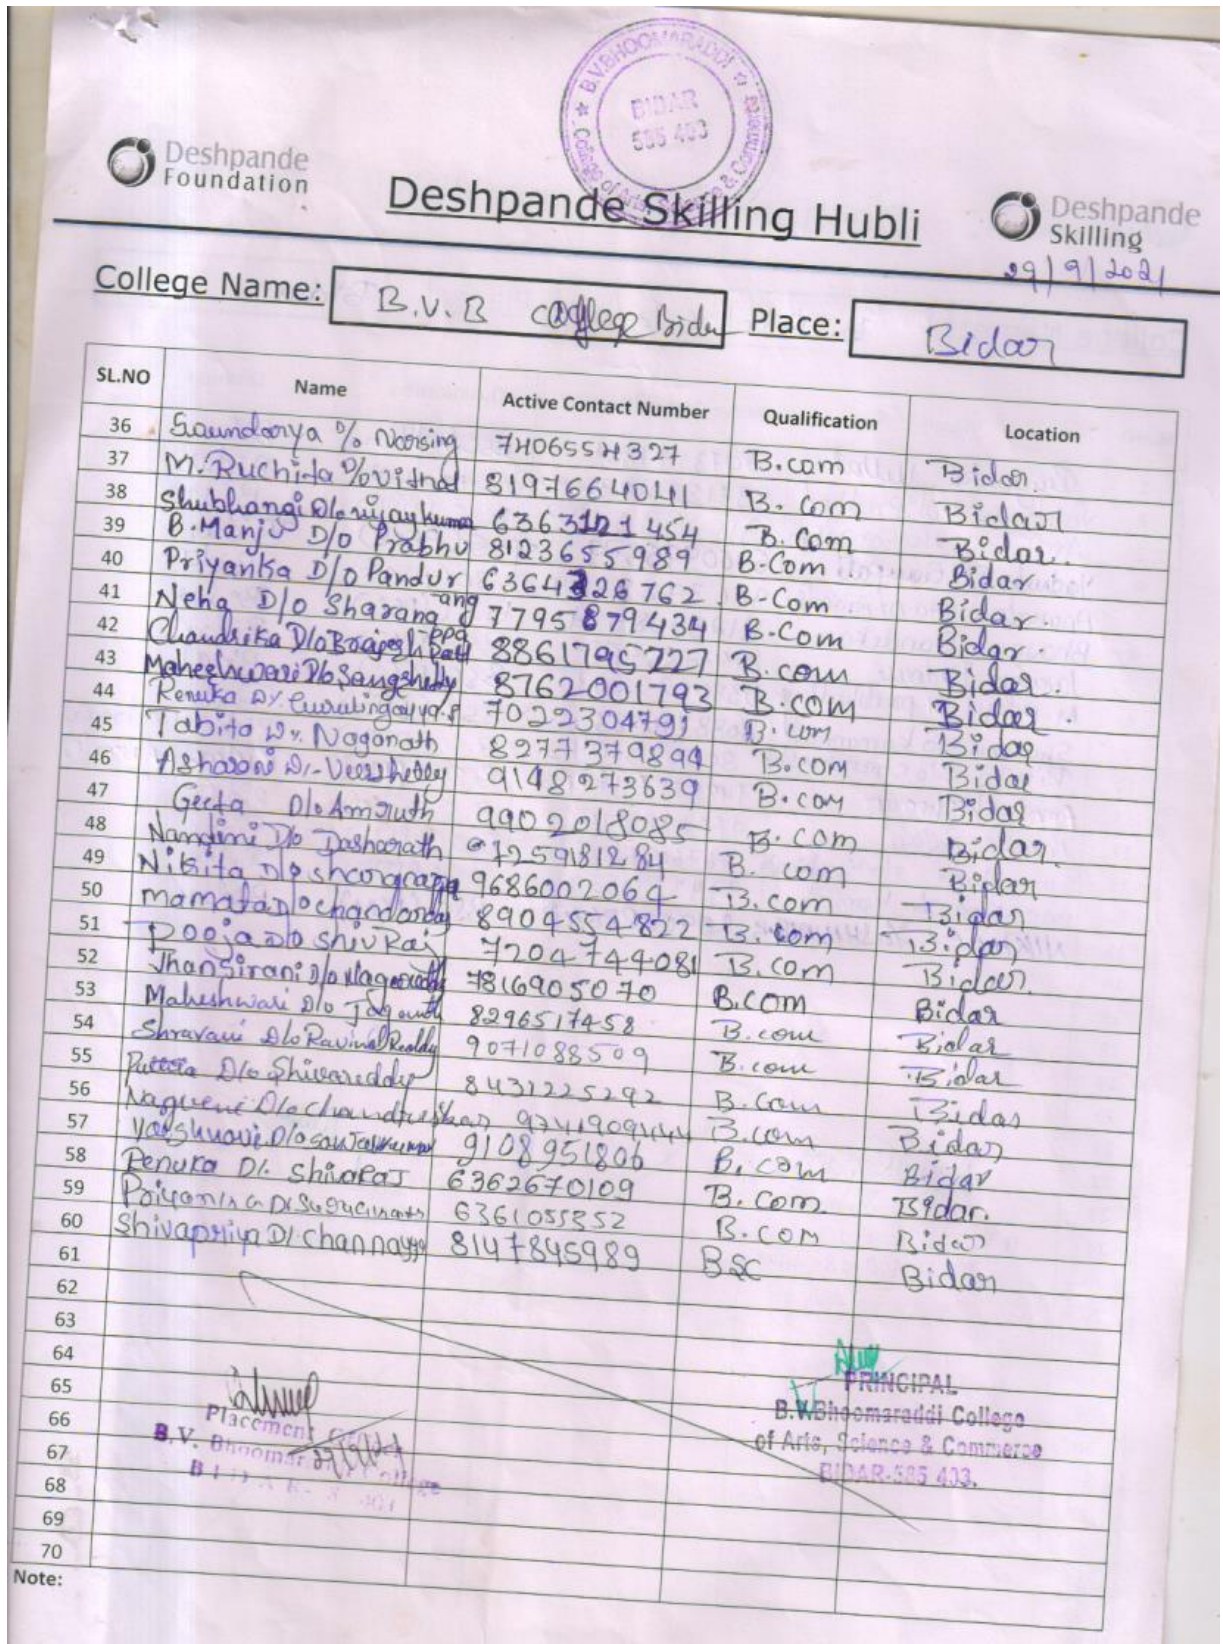 B.V.BHOOMARADDI
BIDAR
585 403
College of Arts, Science & Commerce
Deshpande
Foundation
Deshpande Skilling Hubli
Deshpande
Skilling
29/9/2021
College Name: B.V.B College Bidar Place: Bidar
SL.NO Name Active Contact Number Qualification Location
36 Saundarya D/o Narsing 7406554327 B.com Bidar
37 M. Ruchita D/o Vithal 8197664041 B. Com Bidar
38 Shubhangi D/o vijaykumar 6363121454 B. Com Bidar.
39 B. Manju D/o Prabhu 8123655989 B-Com Bidar
40 Priyanka D/o Pandurang 6364326762 B-Com Bidar.
41 Neha D/o Sharanappa 7795879434 B.Com Bidar
42 Chandrika D/o Patil 8861795227 B.com Bidar.
43 Maheshwari D/o Sangshetty 8762001793 B.com Bidar.
44 Renuka D/. 7022304791 B.com Bidar
45 Tabita D/. Naganath 8277379894 B.com Bidar
46 9148273639 B.com Bidar
47 Geeta D/o Amruth 9902018085 B. com Bidar.
48 Nandini D/o Dasharath 7259181284 B. com Bidar
49 Nikita D/o 9686002064 B.com Bidar
50 mamata D/o 8904554822 B. com Bidar
51 Pooja D/o ShivRaj 7204744081 B.com Bidar.
52 Jhansirani D/o 7816905070 B.com Bidar
53 Maheshwari D/o 8296517458 B.com Bidar
54 Shravani D/o Reddy 9071088509 B.com Bidar
55 D/o Shivareddy 8431225292 B.Com Bidar
56 Nagveni D/o B.com Bidar
57 D/o 9108951806 B. com Bidar
58 Renuka D/. ShivaRaj 6362670109 B. Com Bidar.
59 6361055352 B. Com Bidar
60 Shivapriya D/. Channayya 8147845989 BSC Bidar
61
62
63
64
65
66
67
68
69
70
PRINCIPAL
B.V.Bhoomaraddi College
of Arts, Science & Commerce
BIDAR-585 403.
Placement
B.V. College
Note: